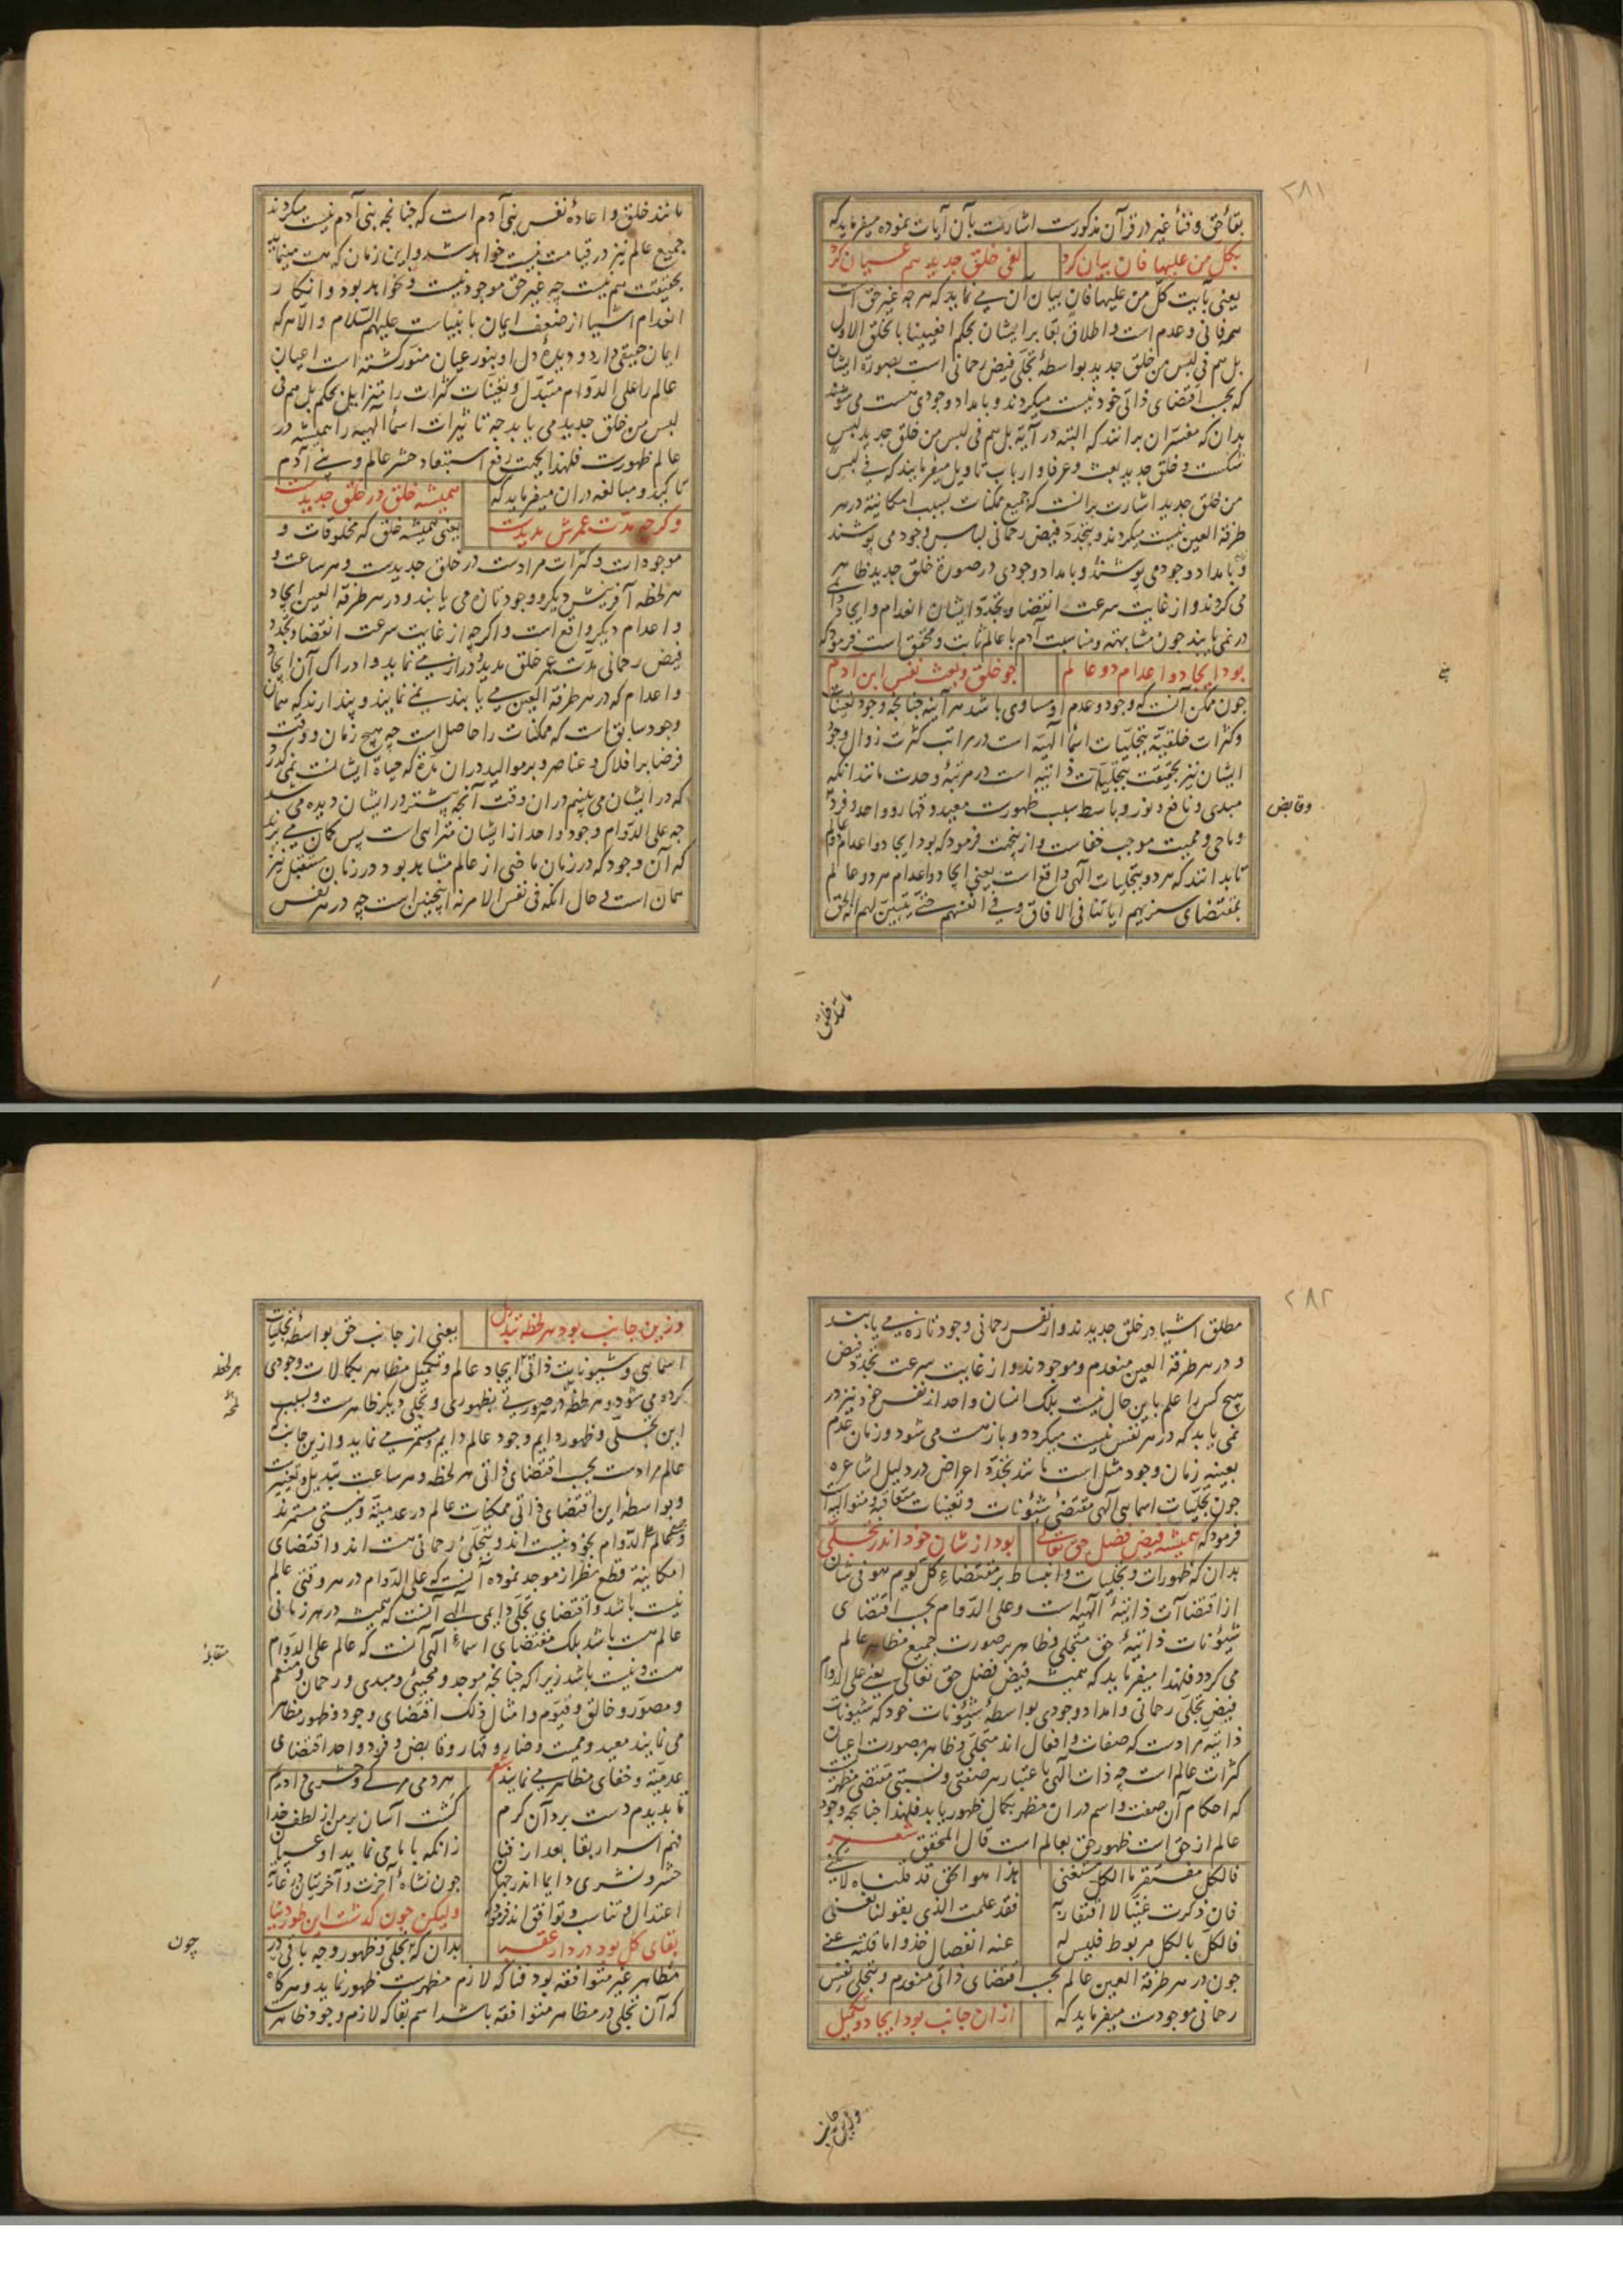 ۲۸۱
بقاء حق و فناء غیر در قرآن مذکورست اشارت بآن آیات نموده میفرماید که
بکل من علیها فان بیان کرد لفی خلق جدید هم عیان کرد
یعنی بآیت کل من علیها فان بیان آن می نماید که هرچه غیر حق است
همه فانی و عدم است و اطلاق بقا بر ایشان بحکم افعیینا بالخلق الاول
بل هم فی لبس من خلق جدید بواسطهٔ تجلی فیض رحمانی است بصورة ایشان
که بحسب اقتضای ذاتی خود نیست میکردند و بامداد وجودی هست می شوند
بدان که مفسران برانند که البته در آیة بل هم فی لبس من خلق جدید لبس
شکست و خلق جدید بعث و عرفا و ارباب تاویل میفرمایند که فی لبس
من خلق جدید اشارت برانست که جمیع ممکنات بسبب امکانیة در هر
طرفة العین نیست میکردند و بتجدد فیض رحمانی لباس وجود می پوشند
و بامداد وجود می پوشند و بامداد وجودی در صورة خلق جدید ظاهر
می کردند و از غایت سرعت انقضا و تجدد ایشان انعدام و ایجاد را
در نمی یابند چون مشابهته و مناسبت آدم با عالم ثابت و محقق است فرمود که
بود ایجاد و اعدام دو عالم چو خلق و بعث نفس ابن ادم
چون ممکن آنست که وجود و عدم او مساوی باشد هر آینه چنانچه وجود تعینات
و کثرات خلقیة بتجلیات اسماء آلهیة است در مراتب کثرت زوال وجود
ایشان نیز بحقیقت بتجلیات ذاتیه است در مرتبهٔ وحدت مانند آنکه
مبدی و نافع و نور و باسط سبب ظهورست معید و قهار و واحد و فرد
و ماحی و ممیت موجب خفاست و ازینجهت فرمود که بود ایجاد و اعدام دو عالم
تا بدانند که هر دو بتجلیات آلهی واقع است یعنی ایجاد و اعدام هر دو عالم
بمقتضای سنریهم ایاتنا فی الافاق و فی انفسهم حتی یتبین لهم انه الحق
بنی
وقابض
مانند خلق
مانند خلق و اعادهٔ نفس بنی آدم است که چنانچه بنی آدم نیست میکردند
جمیع عالم نیز در قیامت نیست خواهد شد و این زمان که هست مینماید
بحقیقت هم نیست چه غیر حق موجود نیست و نخواهد بود و انکار
انعدام اشیا از ضعف ایمان بانبیاست علیهم السلام و الا هر که
ایمان حقیقی دارد و دیدهٔ دل او بنور عیان منور کشته است اعیان
عالم را علی الدوام متبدل و تعینات کثرات را متزایل بحکم بل هم فی
لبس من خلق جدید می یابد چه تاثیرات اسماء الهیه را همیشه در
عالم ظهورست فلهذا بجهت رفع استبعاد حشر عالم و بنی آدم
تاکید و مبالغه در ان میفرماید که همیشه خلق در خلق جدیدست
و کرچه مدت عمرش مدیدست یعنی همیشه خلق که مخلوقات و
موجودات و کثرات مرادست در خلق جدیدست و هر ساعت و
هر لحظه آفرینش دیکر و وجود تازه می یابند و در هر طرفة العین ایجاد
و اعدام دیکر واقع است و اکرچه از غایت سرعت انقضا و تجدد
فیض رحمانی مدت عمر خلق مدید و دراز می نماید و ادراک آن ایجاد
و اعدام که در هر طرفة العین می یابند نمی نمایند و پندارند که همان
وجود سابق است که ممکنات را حاصل است چه هیچ زمان و وقت
فرضا بر افلاک و عناصر و بر موالید دران مدة که حیاة ایشانست نمی کذرد
که در ایشان می بینیم دران وقت آنچه پیشتر در ایشان دیده می شد
چه علی الدوام وجود واحد از ایشان مترائی است پس کمان می برند
که آن وجود که در زمان ماضی از عالم مشاهد بود در زمان مستقبل نیز
همان است و حال انکه فی نفس الامر نه اینچنین است چه در هر نفس
۲۸۲
مطلق اشیا در خلق جدیدند و از نفس رحمانی وجود تازه می یابند
و در هر طرفة العین منعدم و موجودند و از غایت سرعت تجدد فیض
هیچ کس را علم باین حال نیست بلک انسان واحد از نفس خود نیز در
نمی یابد که در هر نفس نیست میکردد و باز هست می شود و زمان عدم
بعینه زمان وجود مثل است مانند تجدد اعراض در دلیل اشاعره
چون تجلیات اسمائی آلهی مقتضی شئونات و تعینات متعاقبه و متوالیه است
فرمود که همیشه فیض فضل حق تعالی بود از شان خود اندر تجلی
بدان که ظهورات و تجلیات و انبساط بر مقتضاء کل یوم هو فی شان
از اقتضاآت ذاتیهٔ آلهیه است و علی الدوام بحسب اقتضای
شئونات ذاتیهٔ حق متجلی و ظاهر بر صورت جمیع مظاهر عالم
می کردد فلهذا میفرماید که همیشه فیض فضل حق تعالی یعنی علی الدوام
فیض تجلی رحمانی و امداد وجودی بواسطهٔ شیئونات خود که شیئونات
ذاتیه مرادست که صفات و افعال اند متجلی و ظاهر بصورت اعیان
کثرات عالم است چه ذات آلهی باعتبار هر صفتی و نسبتی مقتضی مظهریست
که احکام آن صفت و اسم دران مظهر بکمال ظهور یابد فلهذا چنانچه وجود
عالم از حق است ظهور حق بعالم است قال المحقق شعر
فالکل مفتقر ما الکل مستغنی هذا هو الحق قد قلناه لا نکنی
فان ذکرت غنیا لا افتقار به فقد علمت الذی بقولنا نعنی
فالکل بالکل مربوط فلیس له عنه انفصال خذوا ما قلته عنی
چون در هر طرفة العین عالم بحسب اقتضای ذاتی منعدم و بتجلی نفس
رحمانی موجودست میفرماید که از ان جانب بود ایجاد و تکمیل
وزین جانب
وزین جانب بود هر لحظه تبدیل یعنی از جانب حق بواسطهٔ تجلیات
اسمائی و شیئونات ذاتی ایجاد عالم و تکمیل مظاهر بکمالات وجودی
کرده می شود و هر لحظه در صورتی بظهوری و تجلی دیکر ظاهرست و بسبب
این تجلی و ظهور دایم وجود عالم دایم و مستمر می نماید و ازین جانب که
عالم مرادست بحسب اقتضای ذاتی هر لحظه و هر ساعت تبدیل و تغییرست
و بواسطهٔ این اقتضای ذاتی ممکنات عالم در عدمیة و نیستی مستمرند
علی الدوام بخود نیست اند و بتجلی رحمانی هست اند و اقتضای
امکانیة قطع نظر از موجد نموده آنست که علی الدوام در هر وقتی عالم
نیست باشد و اقتضای تجلی دایمی الهی آنست که همیشه در هر زمانی
عالم هست باشد بلک مقتضای اسماء آلهی آنست که عالم علی الدوام
هست و نیست باشد زیرا که چنانچه موجد و محیی و مبدی و رحمان و منعم
و مصور و خالق و قیوم و امثال ذلک اقتضای وجود و ظهور مظاهر
می نمایند معید و ممیت و ضار و قهار و قابض و فرد و واحد اقتضای
عدمیة و خفای مظاهر می نمایند شعر هر دمی مرکی و حشری دادیم
تا بدیدم دست برد آن کرم کشت آسان بر من از لطف خدا
فهم اسرار بقا بعد از فنا زانکه با ما می نماید او عیان
حشر و نشری دایما اندر جهان چون نشاه آخرت و آخرتیان در غایة
اعتدال و تناسب و توافق اند فرمود ولیکن چون کذشت این طور دنیا
بقای کل بود در دار عقبی بدان که تجلی و ظهور وجه باقی در
مظاهر غیر متوافقه بود فنا که لازم مظهرست ظهور نماید و هرکاه
که آن تجلی در مظاهر متوافقه باشد اسم بقا که لازم وجود ظاهرست
هر لحظه
متقابلهٔ
چون